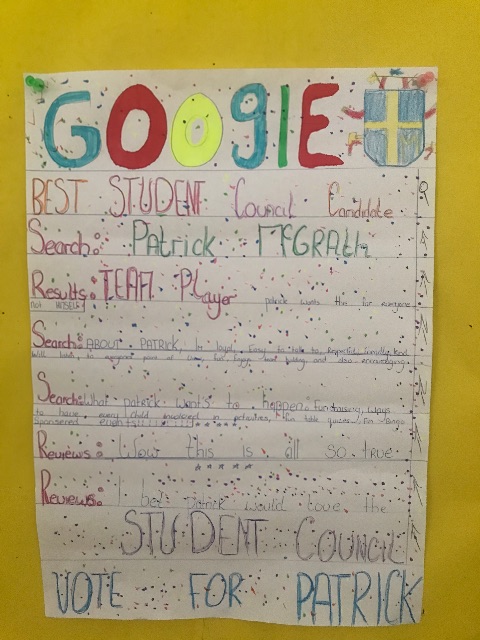 GOOGlE
BEST STUDENT Council Candidate
Search: Patrick McGRath
Results: TEAM Player patrick wants the for everyone
not HIMSELF
Search: ABOUT PATRICK. Is loyal, Easy to talk to, Respectful, friendly, kind
Will listen, to everyone and also encouraging.
Search: What patrick wants to happen. Fundraising, Ways
to have every child involved in activities, fun table quizes, Fun Bingo
Sponsored events!!!
Reviews: Wow this is all so TRUE
★★★★★
Reviews: I bet Patrick would love the
STUDENT COUNCIL
VOTE FOR PATRICK